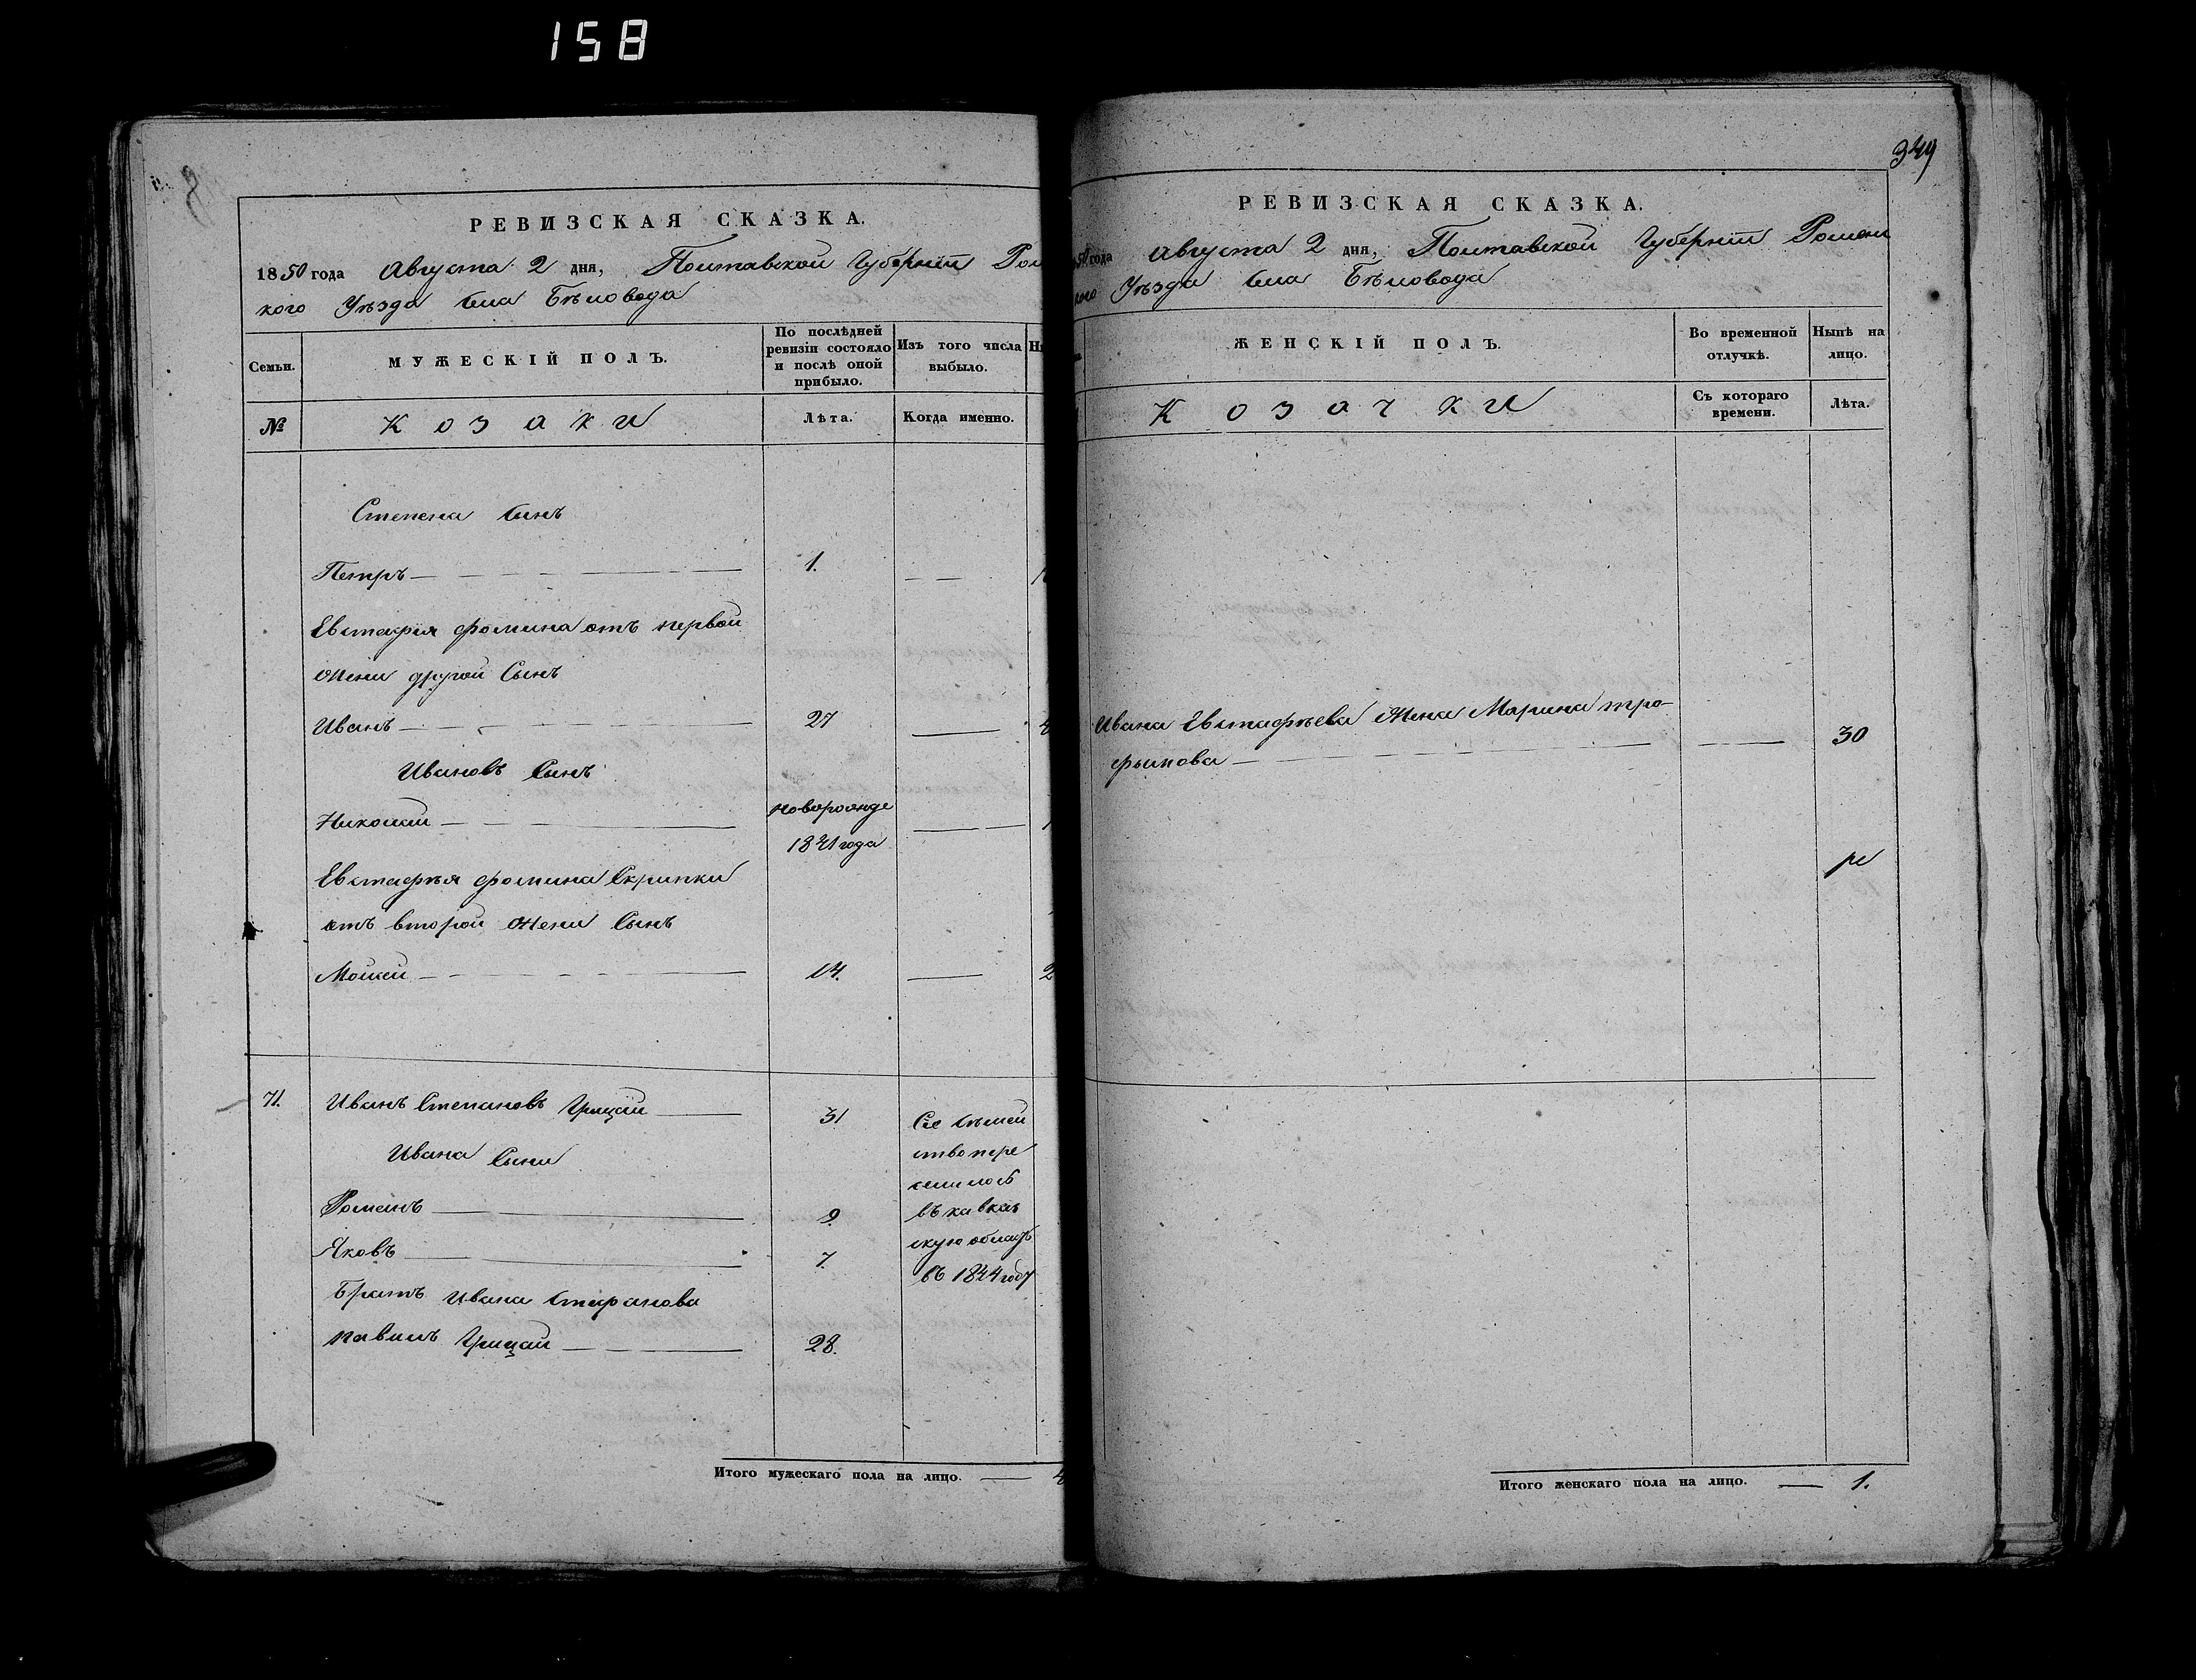 158
РЕВИЗСКАЯ СКАЗКА.
1850 года Августа 2 дня, Полтавской Губерніи Ром
кого Уѣзда Села Бѣловода
Семьи.
МУЖЕСКІЙ ПОЛЪ.
По послѣдней ревизіи состояло и послѣ оной прибыло.
Изъ того числа выбыло.
№
Козаки
Лѣта.
Когда именно.
Степена Сынъ
Петръ 1.
Евстафія Фомина отъ первой
жени другой Сынъ
Иванъ 27
Ивановъ Сынъ
Николай новорожде
1841 года
Евстафѣя Фомина Скрипки
отъ второй жени Сынъ
Мойсей 14. 2
71. Иванъ Степановъ Грицай 31
Ивана Сыни
Романъ 9.
Яковъ 7.
Братъ Ивана Стефанова
Павилъ Грицай 28.
Сіе Сѣмей
ство пере
селилось
въ кавказ
скую область
въ 1844 году
Итого мужескаго пола на лицо.
349
РЕВИЗСКАЯ СКАЗКА.
50 года Августа 2 дня, Полтавской Губерніи Ромен
кого Уѣзда Села Бѣловода
ЖЕНСКІЙ ПОЛЪ.
Во временной отлучкѣ.
Нынѣ на лицо.
Козачки
Съ котораго времени.
Лѣта.
Ивана Евстафѣева Жена Марина тро-
фымова 30
Итого женскаго пола на лицо. 1.